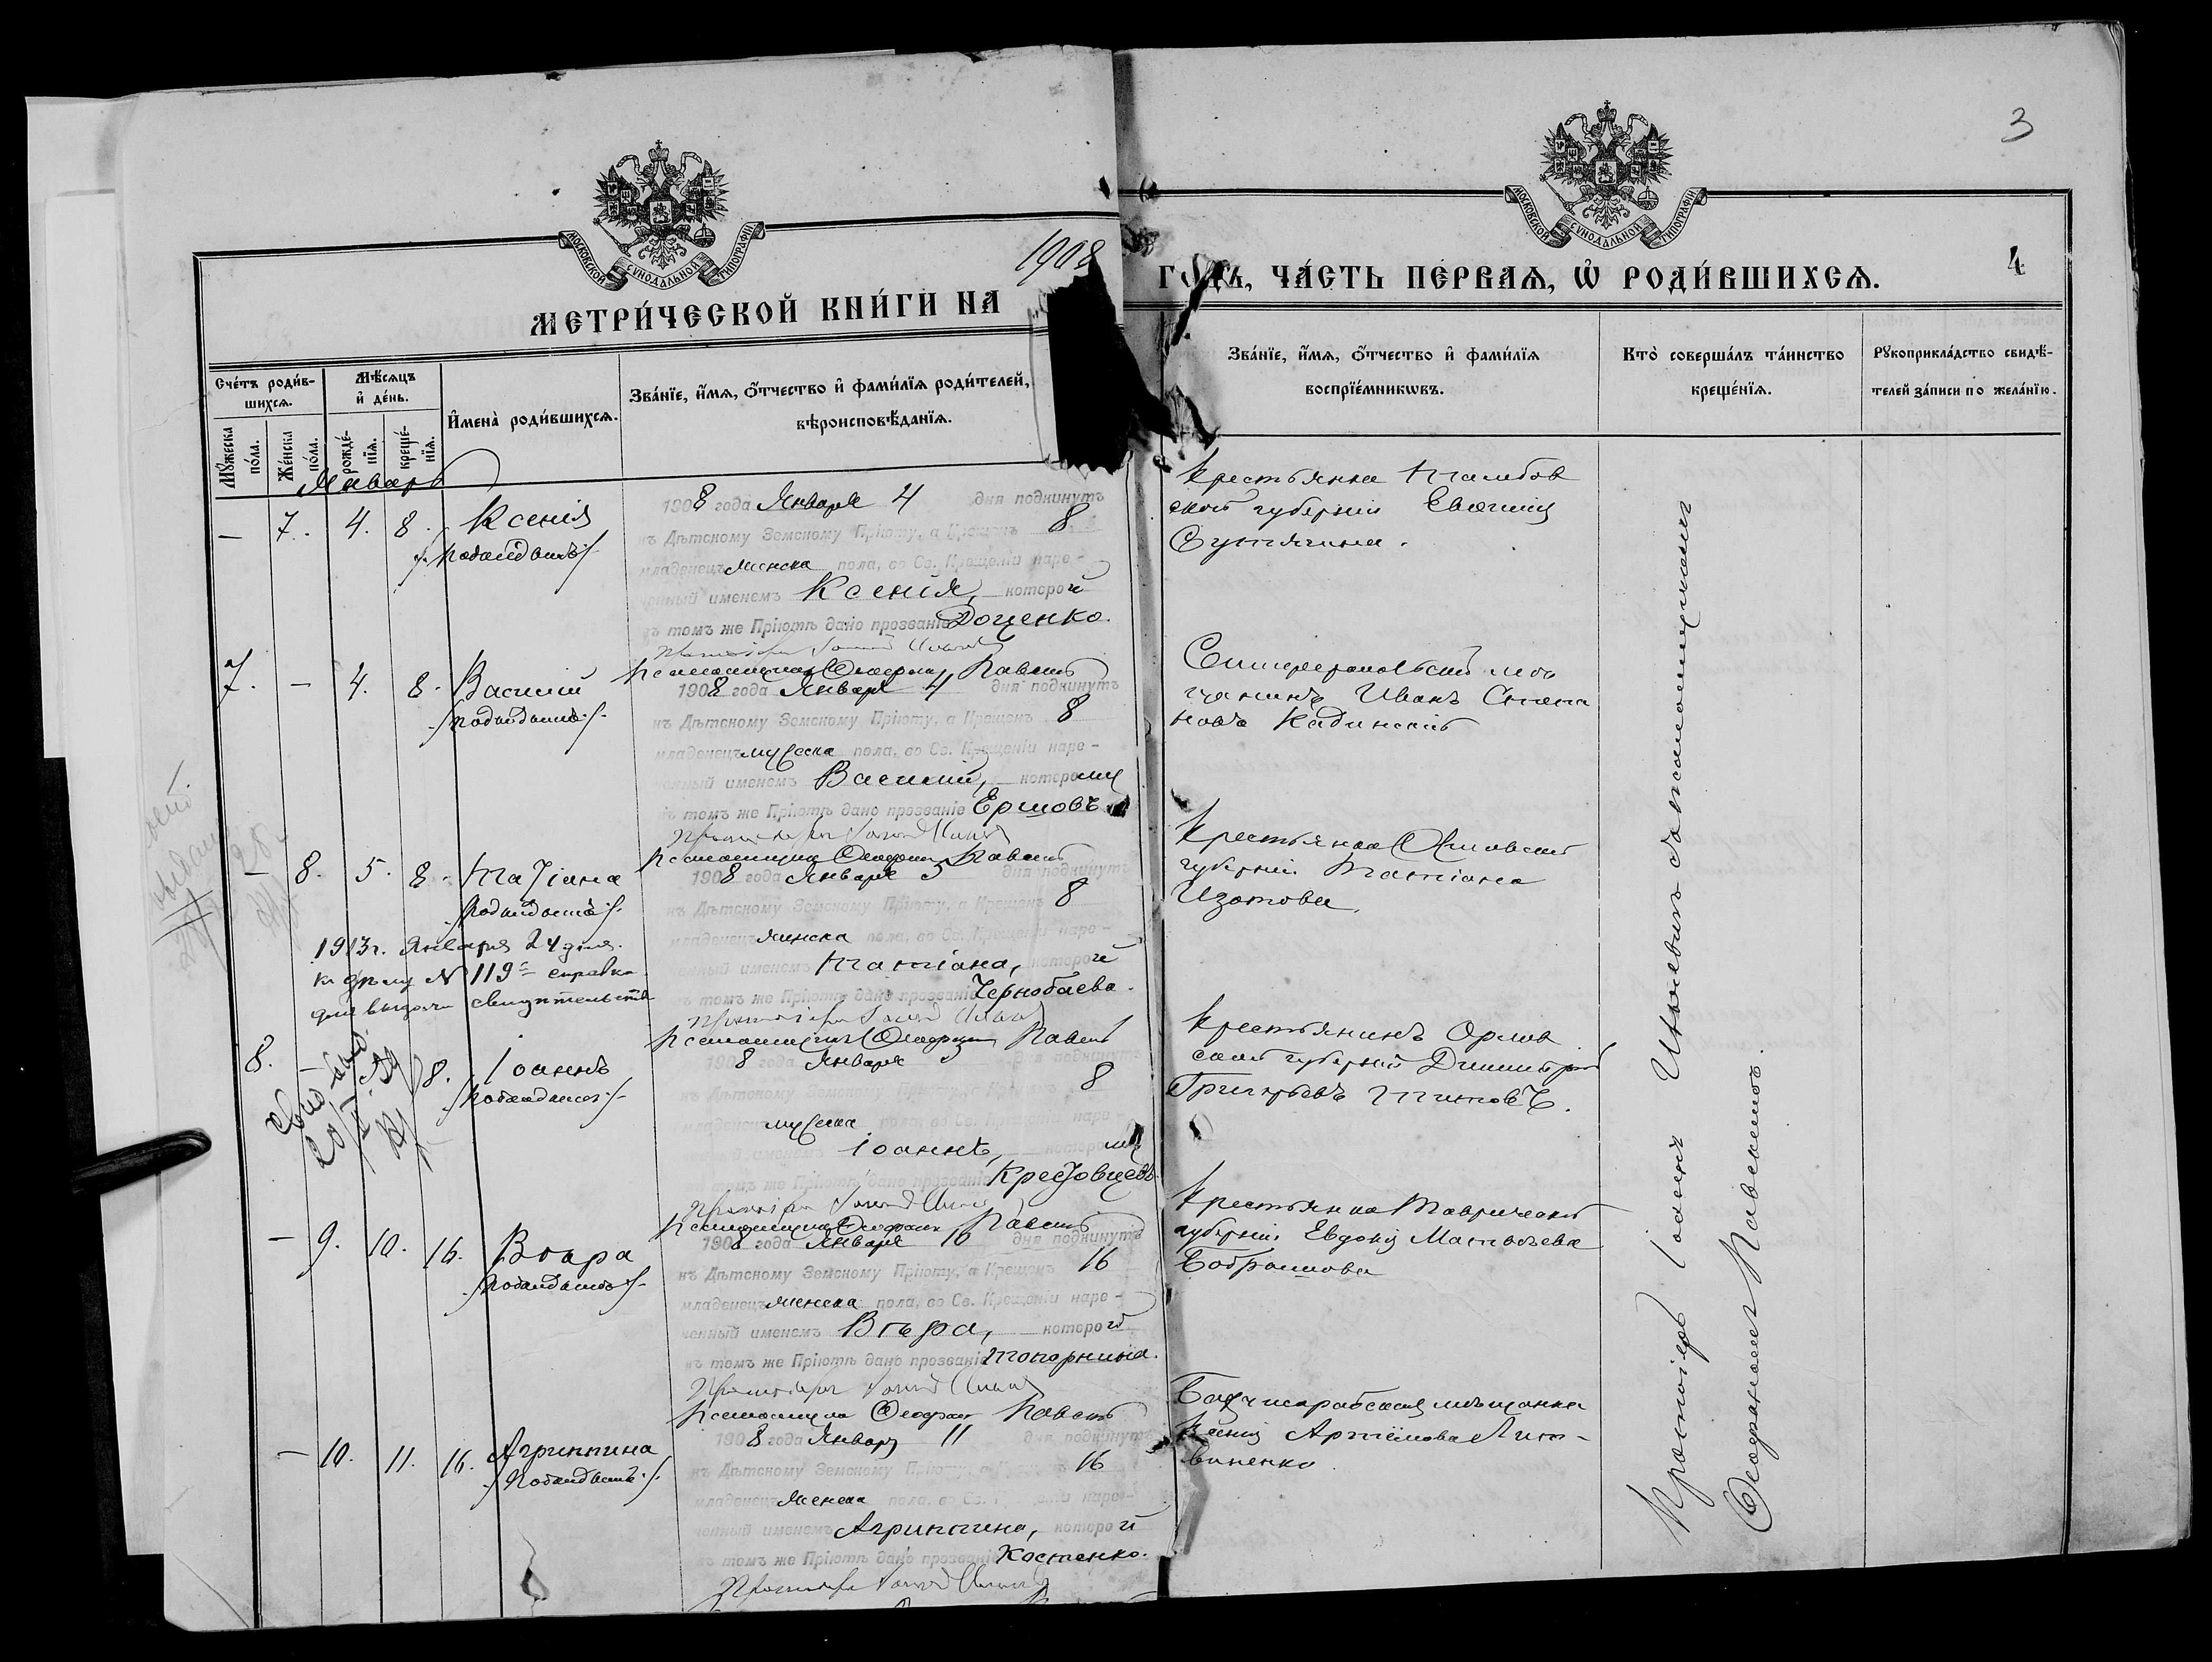 3
МОСКОВСКОЙ СѴНОДАЛЬНОЙ ТИПОГРАФІИ
МОСКОВСКОЙ СѴНОДАЛЬНОЙ ТИПОГРАФІИ
1908
МЕТРИ́ЧЕСКОЙ КНИ́ГИ НА ГОДЪ, ЧА́СТЬ ПЕ́РВАѦ, Ѡ РОДИ́ВШИХСѦ.
4
Сче́тъ роди́в-
шихсѧ.
Мꙋ́жеска
по́ла.
Же́нска
по́ла.
Мѣ́сѧцъ
и҆ де́нь.
рожде́-
нїѧ.
креще́-
нїѧ.
И҆мена̀ роди́вшихсѧ.
Зва́нїе, и҆́мѧ, ѻ҆́тчество и҆ фами́лїѧ роди́телей,
вѣроисповѣ́данїѧ.
Зва́нїе, и҆́мѧ, ѻ҆́тчество и҆ фами́лїѧ
воспрїе́мникѡвъ.
Кто̀ соверша́лъ та́инство
креще́нїѧ.
Рꙋкоприкла́дство свидѣ́-
телей за́писи по жела́нїю.
Январь
— 7. 4. 8. Ксенія
1908 года Января 4 дня подкинутъ
къ Дѣтскому Земскому Пріюту, а Крещенъ 8
младенецъ женска пола, во Св. Крещеніи наре-
ченный именемъ Ксенія, которой
въ томъ же Пріютѣ дано прозваніе Доценко.
Крестьянка Тамбов
ской губерніи Евгенія
Сутягина.
7. — 4. 8. Василій
Псаломщикъ Павскій
1908 года Января 4 дня подкинутъ
къ Дѣтскому Земскому Пріюту, а Крещенъ 8
младенецъ мужеска пола, во Св. Крещеніи наре-
ченный именемъ Василій, которому
въ томъ же Пріютѣ дано прозваніе Ершовъ
Симферопольскій мѣ
щанинъ Иванъ Степа
новъ Кадинскій
— 8. 5. 8. Татіана
1913 г. Января 24 дня.
къ дѣлу № 119 справка
для выдачи свидѣтельства
Псаломщикъ Павскій
1908 года Января 5 дня подкинутъ
къ Дѣтскому Земскому Пріюту, а Крещенъ 8
младенецъ женска пола, во Св. Крещеніи наре-
ченный именемъ Татіана, которой
въ томъ же Пріютѣ дано прозваніе Чернобаева.
Крестьянка
губерніи Татіана
Изотова.
8. — 8. Іоаннъ
Псаломщикъ Павскій
1908 года Января 5 дня подкинутъ
къ Дѣтскому Земскому Пріюту, а Крещенъ 8
младенецъ мужеска пола, во Св. Крещеніи наре-
ченный именемъ Іоаннъ, которому
въ томъ же Пріютѣ дано прозваніе Крестовцевъ.
Крестьянинъ Орлов
ской губерніи Димитрій
Григорьевъ Титовъ.
— 9. 10. 16. Вѣра
Псаломщикъ Павскій
1908 года Января 10 дня подкинутъ
къ Дѣтскому Земскому Пріюту, а Крещенъ 16
младенецъ женска пола, во Св. Крещеніи наре-
ченный именемъ Вѣра, которой
въ томъ же Пріютѣ дано прозваніе Топорнина.
Крестьянка Таврической
губерніи Евдокія Матвѣева
— 10. 11. 16. Агриппина
Псаломщикъ Павскій
1908 года Января 11 дня подкинутъ
къ Дѣтскому Земскому Пріюту, а Крещенъ 16
младенецъ женска пола, во Св. Крещеніи наре-
ченный именемъ Агриппина, которой
въ томъ же Пріютѣ дано прозваніе Костенко.
Бахчисарайская мѣщанка
Ксенія Артемова Лит-
виненко.
Протоіерей Іоаннъ съ псаломщикомъ
Павскимъ.